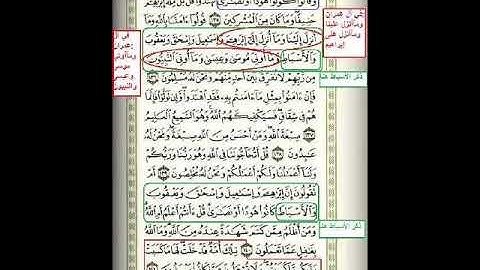 حَنِيفًا وَمَا كَانَ مِنَ الْمُشْرِكِينَ قُولُوا آمَنَّا بِاللَّهِ وَمَا
أُنزِلَ إِلَيْنَا وَمَا أُنزِلَ إِلَىٰ إِبْرَاهِيمَ وَإِسْمَاعِيلَ وَإِسْحَاقَ وَيَعْقُوبَ
وَالْأَسْبَاطِ وَمَا أُوتِيَ مُوسَىٰ وَعِيسَىٰ وَمَا أُوتِيَ النَّبِيُّونَ
مِن رَّبِّهِمْ لَا نُفَرِّقُ بَيْنَ أَحَدٍ مِّنْهُمْ وَنَحْنُ لَهُ مُسْلِمُونَ
فَإِنْ آمَنُوا بِمِثْلِ مَا آمَنتُم بِهِ فَقَدِ اهْتَدَوا وَّإِن تَوَلَّوْا فَإِنَّمَا
هُمْ فِي شِقَاقٍ فَسَيَكْفِيكَهُمُ اللَّهُ وَهُوَ السَّمِيعُ الْعَلِيمُ
صِبْغَةَ اللَّهِ وَمَنْ أَحْسَنُ مِنَ اللَّهِ صِبْغَةً وَنَحْنُ لَهُ
عَابِدُونَ قُلْ أَتُحَاجُّونَنَا فِي اللَّهِ وَهُوَ رَبُّنَا وَرَبُّكُمْ
وَلَنَا أَعْمَالُنَا وَلَكُمْ أَعْمَالُكُمْ وَنَحْنُ لَهُ مُخْلِصُونَ أَمْ
تَقُولُونَ إِنَّ إِبْرَاهِيمَ وَإِسْمَاعِيلَ وَإِسْحَاقَ وَيَعْقُوبَ
وَالْأَسْبَاطَ كَانُوا هُودًا أَوْ نَصَارَىٰ قُلْ أَأَنتُمْ أَعْلَمُ أَمِ اللَّهُ
وَمَنْ أَظْلَمُ مِمَّن كَتَمَ شَهَادَةً عِندَهُ مِنَ اللَّهِ وَمَا اللَّهُ
بِغَافِلٍ عَمَّا تَعْمَلُونَ تِلْكَ أُمَّةٌ قَدْ خَلَتْ لَهَا مَا كَسَبَتْ
في آل عمران
وما أنزل علينا
وما أنزل على
إبراهيم
ذكر الأسباط هنا
في آل
عمران
وما أوتي
موسى
وعيسى
والنبيون
ذكر الأسباط هنا